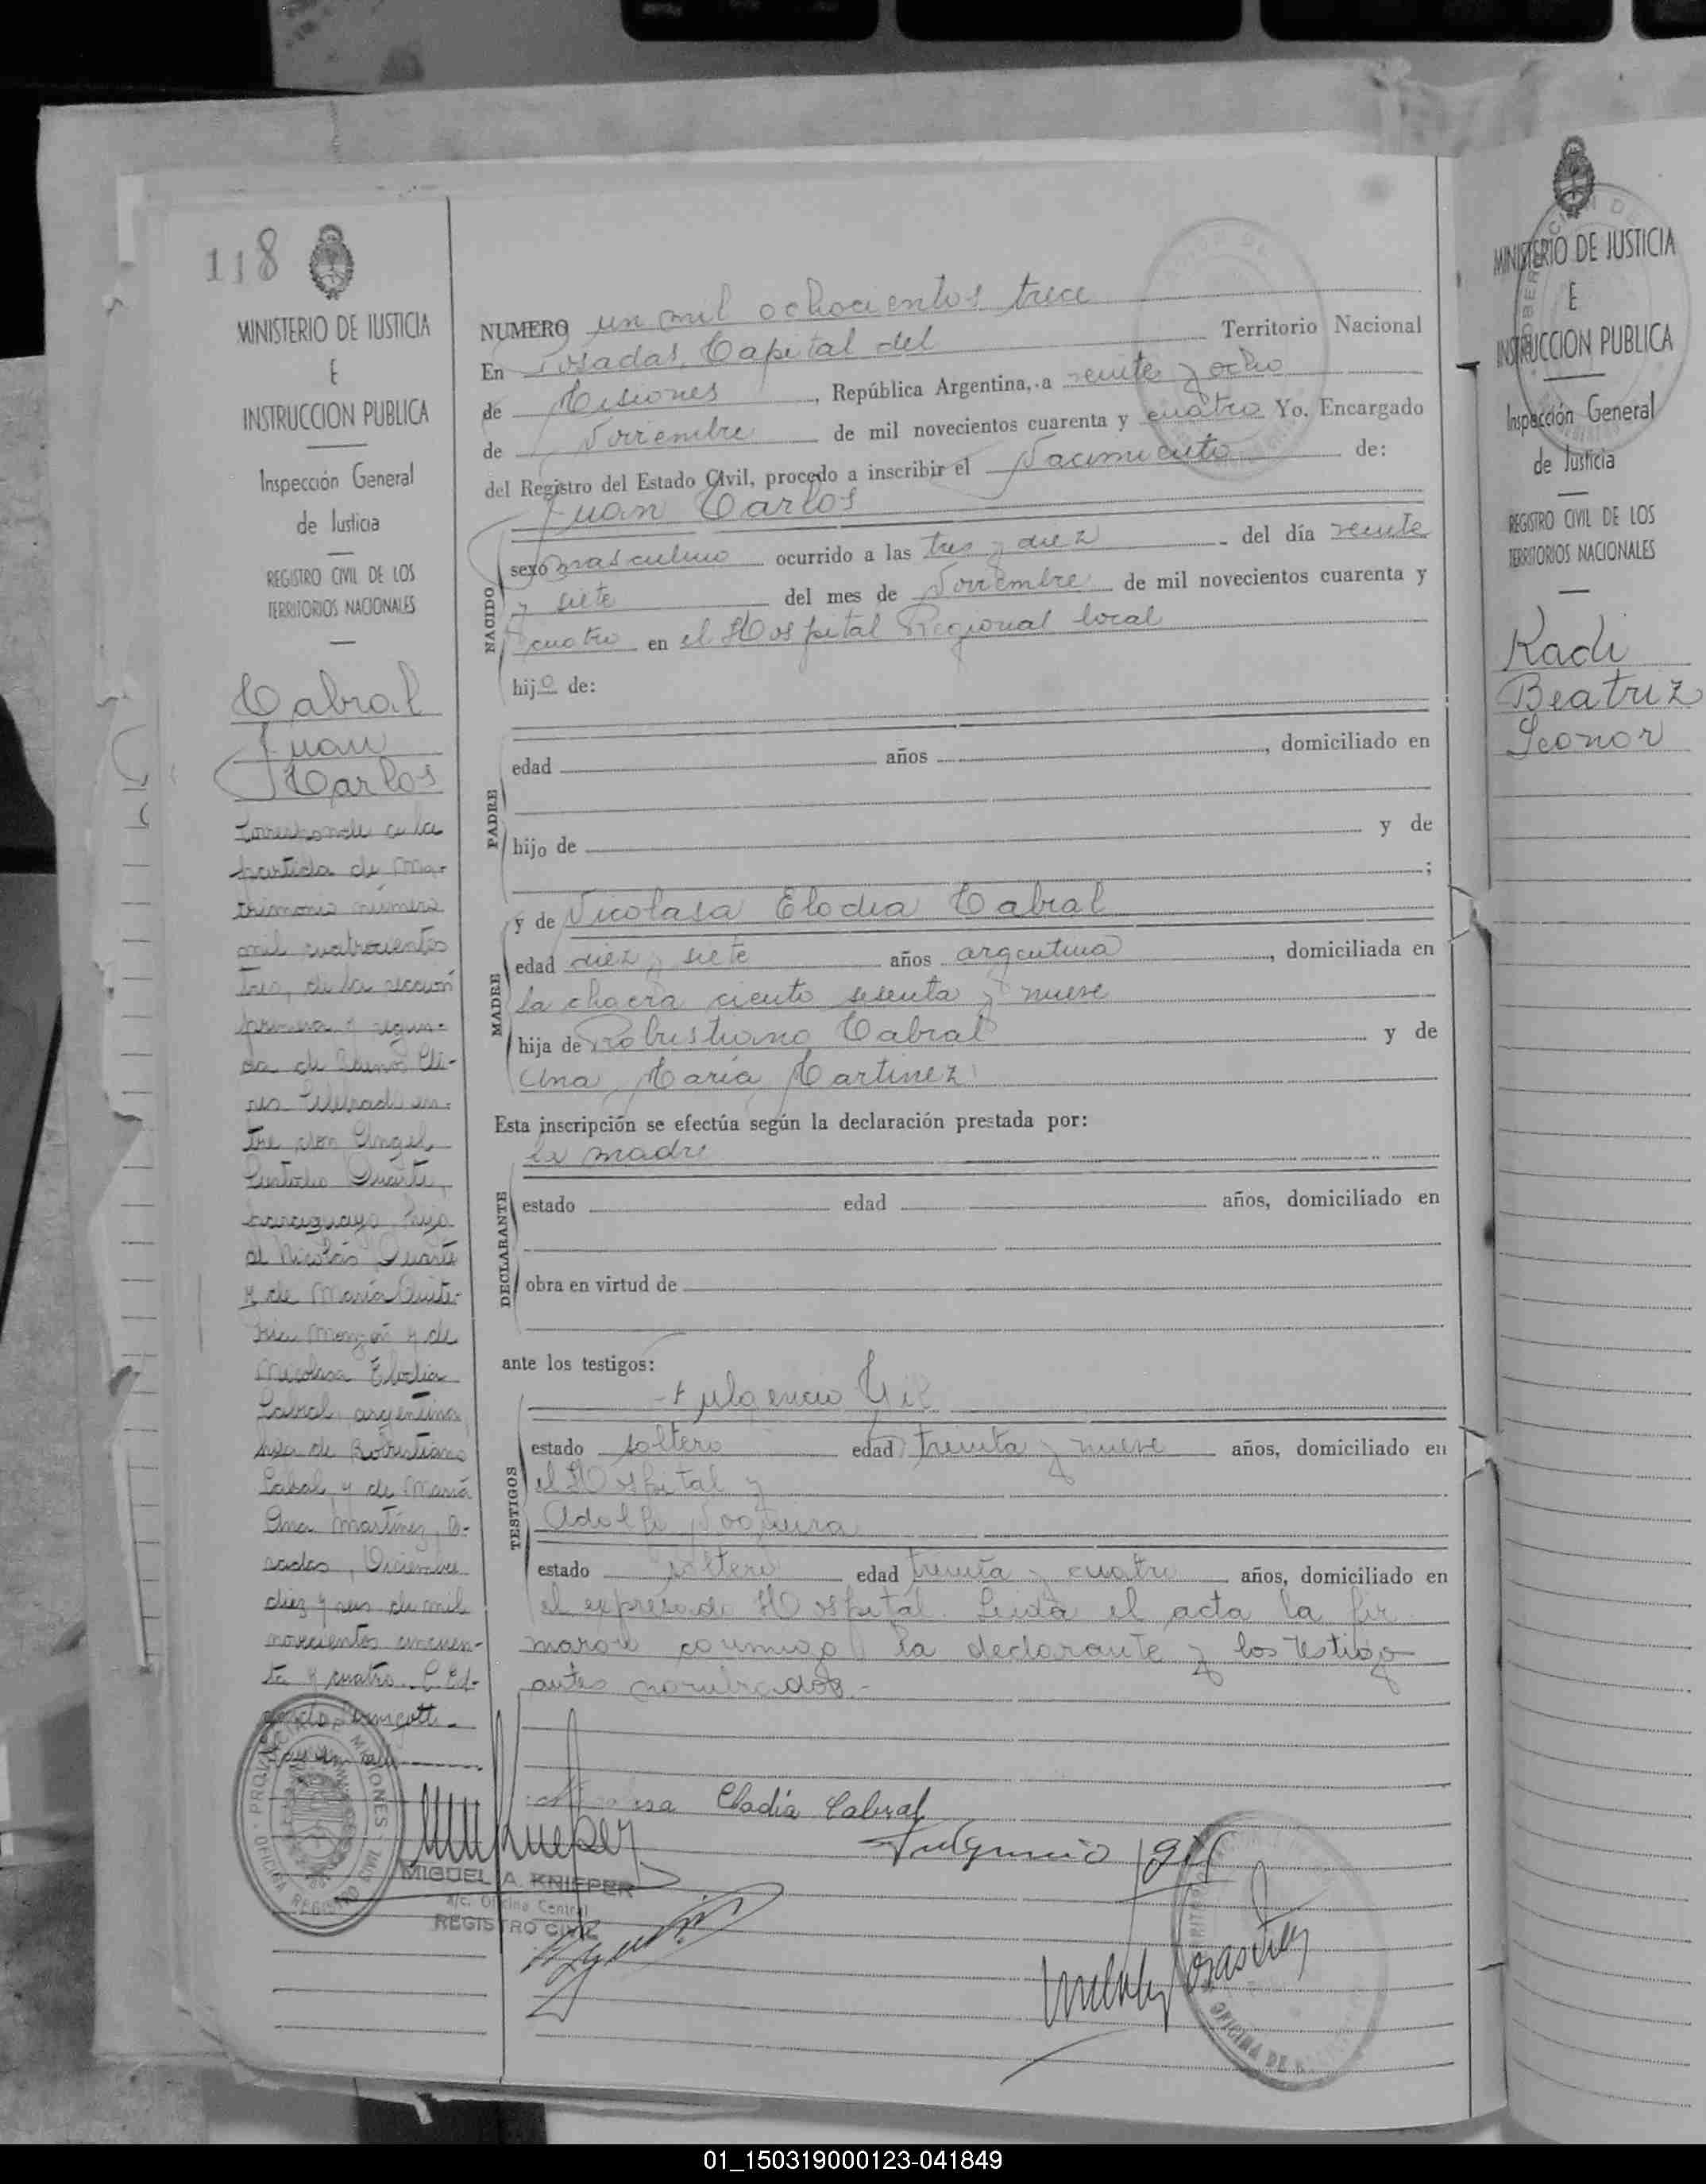 118
MINISTERIO DE JUSTICIA
E
INSTRUCCION PUBLICA
Inspección General
de Justicia
REGISTRO CIVIL DE LOS
TERRITORIOS NACIONALES
Cabral
Juan
Carlos
Corresponde a la
partida de ma-
trimonio número
mil cuatrocientos
tres, de la sección
primera y segun-
da de Buenos Ai-
res Celebrado en-
tre don Angel
Custodio Duarte,
paraguayo, hijo
de Nicolás Duarte
y de María Quite-
ria Monzón y de
Nicolasa Elodia
Cabral, argentina
hija de Robustiano
Cabral y de María
Ana Martínez, Po-
sadas, Diciembre
diez y seis de mil
novecientos cincuen-
ta y cuatro.
PROVINCIA DE MISIONES
OFICINA REGISTRO CIVIL
MIGUEL A. KNIEPER
a/c. Oficina Central
REGISTRO CIVIL
NUMERO un mil ochocientos trece
En Posadas, Capital del Territorio Nacional
de Misiones, República Argentina, a veinte y ocho
de Noviembre de mil novecientos cuarenta y cuatro Yo, Encargado
del Registro del Estado Civil, procedo a inscribir el Nacimiento de:
NACIDO
Juan Carlos
sexo masculino ocurrido a las tres y diez del día veinte
y siete del mes de Noviembre de mil novecientos cuarenta y
cuatro en el Hospital Regional local
hijo de:
PADRE
edad años , domiciliado en
hijo de y de
;
MADRE
y de Nicolasa Elodia Cabral
edad diez y siete años argentina, domiciliada en
la chacra ciento sesenta y nueve
hija de Robustiano Cabral y de
Ana María Martinez
Esta inscripción se efectúa según la declaración prestada por:
DECLARANTE
la madre
estado edad años, domiciliado en
obra en virtud de
ante los testigos:
TESTIGOS
Fulgencio Gil
estado soltero edad treinta y nueve años, domiciliado en
el Hospital y
Adolfo Nogueira
estado soltero edad treinta y cuatro años, domiciliado en
el expresado Hospital. Leida el acta la fir
maron conmigo la declarante y los testigo
antes nombrados.-
Eladia Cabral
Fulgencio Gil
MINISTERIO DE JUSTICIA
E
INSTRUCCION PUBLICA
Inspección General
de Justicia
REGISTRO CIVIL DE LOS
TERRITORIOS NACIONALES
Kadi
Beatriz
Leonor
01_150319000123-041849